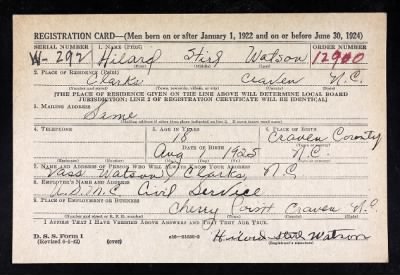 REGISTRATION CARD—(Men born on or after January 1, 1922 and on or before June 30, 1924)
SERIAL NUMBER 1. NAME (Print) ORDER NUMBER
W-292 Hilard Stirl Watson 12900
(First) (Middle) (Last)
2. PLACE OF RESIDENCE (Print)
Clarks Craven N.C.
(Number and street) (Town, township, village, or city) (County) (State)
[THE PLACE OF RESIDENCE GIVEN ON THE LINE ABOVE WILL DETERMINE LOCAL BOARD
JURISDICTION; LINE 2 OF REGISTRATION CERTIFICATE WILL BE IDENTICAL]
3. MAILING ADDRESS
Same
[Mailing address if other than place indicated on line 2. If same insert word same]
4. TELEPHONE 5. AGE IN YEARS 6. PLACE OF BIRTH
18 Craven County
DATE OF BIRTH (Town or county)
Aug 1 1925 N.C.
(Exchange) (Number) (Mo.) (Day) (Yr.) (State or country)
7. NAME AND ADDRESS OF PERSON WHO WILL ALWAYS KNOW YOUR ADDRESS
Vass Watson, Clarks, N.C
8. EMPLOYER'S NAME AND ADDRESS
Civil Service
9. PLACE OF EMPLOYMENT OR BUSINESS
Cherry Point Craven N.C
(Number and street or R. F. D. number) (Town) (County) (State)
I AFFIRM THAT I HAVE VERIFIED ABOVE ANSWERS AND THAT THEY ARE TRUE.
D. S. S. Form 1
(Revised 6-9-42) (over) Hilard Stirl Watson
(Registrant's signature)